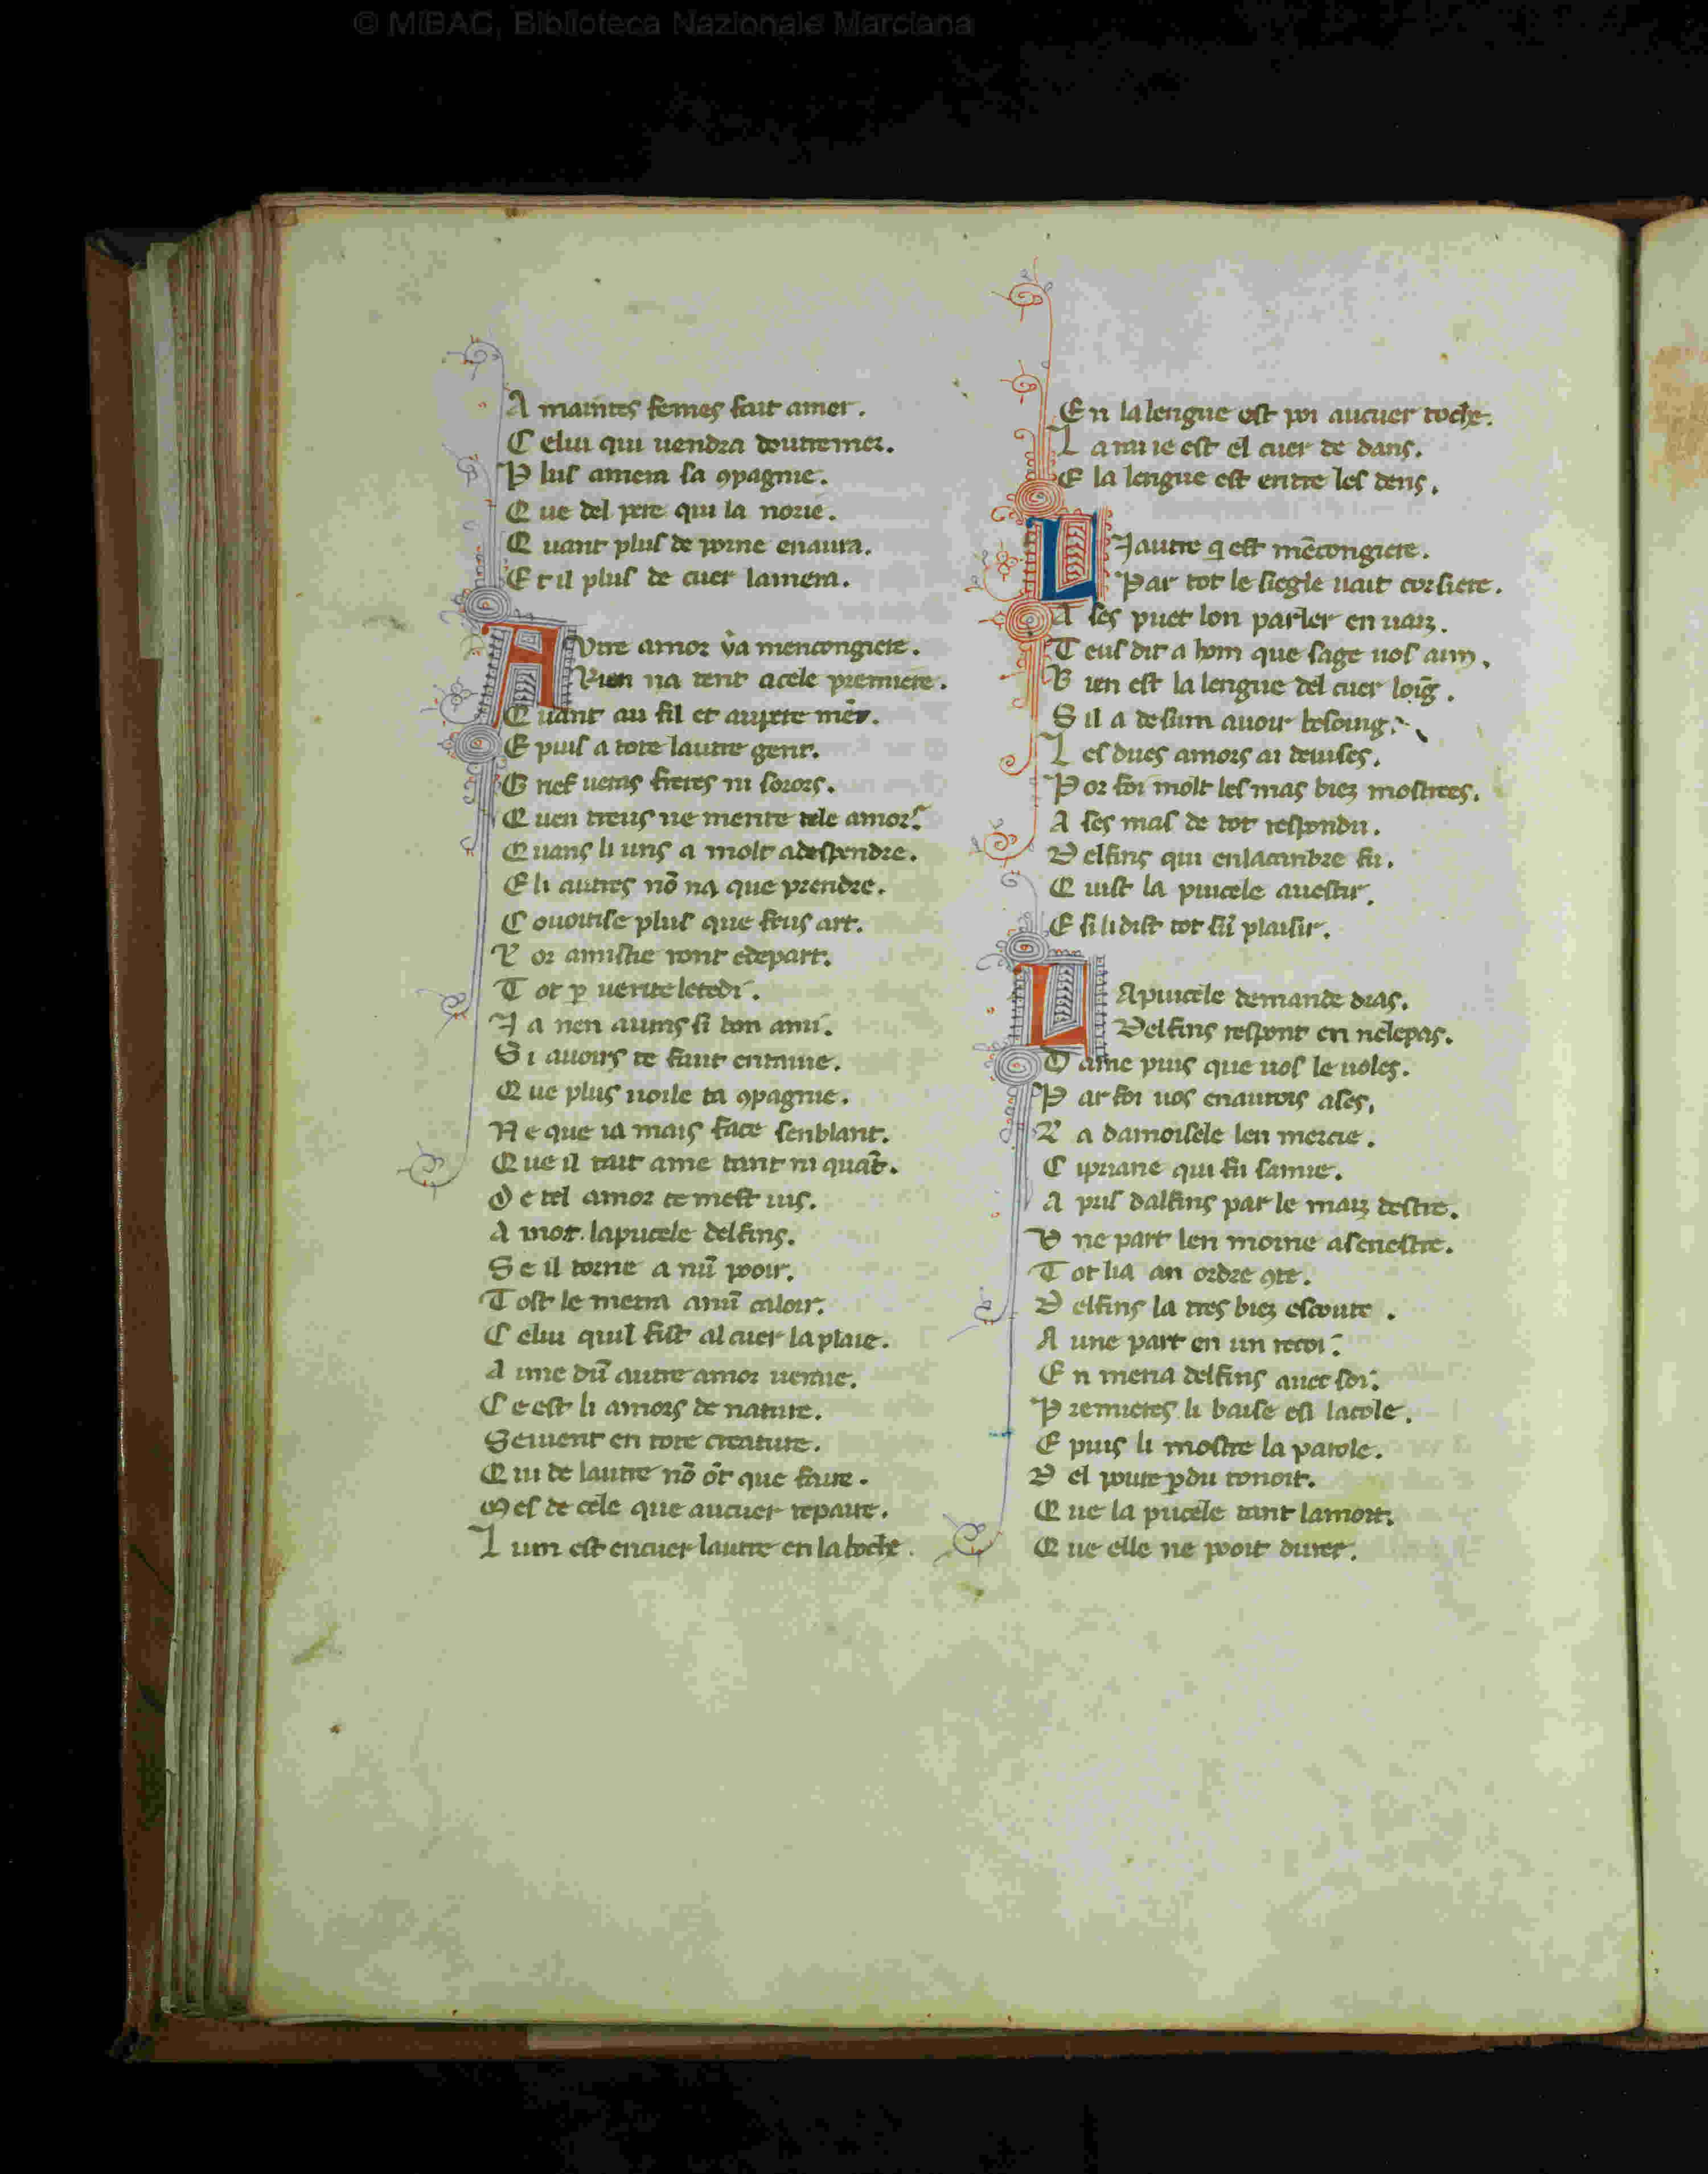 © MiBAC, Biblioteca Nazionale Marciana
A maintes femes fait amer.
C elui qui uendra doutremer.
P lus amera sa ꝯpagnie.
Q ue del pere qui la norie.
Q uant plus de poine enaura.
E t il plus de cuer lamera.
A Vtre amor ua mencongiere.
Rien na tent acele premiere.
Q uant au fil et aupere mēt.
E puis a tote lautre gent.
G nef ueras freres ni sorors.
Q uen treus ne mente tele amors.
Q uans li uns a molt adespendre.
E li autres nō na que prendre.
C ouoitise plus que feus art.
P or amistie ront edepart.
T ot ꝑ uerite letedi.
J a nen auras si bon ami.
S i auoirs te faut entauie.
Q ue plus uoile ta ꝯpagnie.
N e que ia mais face senblant.
Q ue il tait ame tant ni quāt.
D e tel amor te mest uis.
A mot lapucele delfins.
S e il torne a nul̄ pooir.
T ost le metra anul̄ caloir.
C elui quil fist al cuer la plaie.
A ime dun̄ autre amor ueraie.
C e est li amors de nature.
Seiuent en tote creature.
Q ui de lautre nō ōt que faire.
M es de cele que aucuer repaire.
L um est encuer lautre en la boche.
E n lalengue est poi aucuer toche.
L amiue est el cuer de dans.
E la lengue est entre les dens.
L Jautre q̄ est mēcongiere.
Par tot le siegle uait corsiere.
A ses puet lon parler en uain.
T eus dit a hom que sage uos aim.
B ien est la lengue del cuer loīg.
S il a desum auoir besoing.
L es dues amors ai deuises.
P or foi molt les mas bien mostrees.
A ses mas de tot respondu.
D elfins qui enlacanbre fu.
Q uist la pucele auestir.
E si li dist tot sun̄ plaisir.
L Apucele demande dras.
Delfins respont en nelepas.
D ame puis que uos le uoles.
P ar foi uos enaurois ases.
L a damoisele len mercie.
C ipriane qui fu samie.
A pris dalfins par le main destre.
V ne part len moine asenestre.
T ot lia an ordre ꝯte.
D elfins la tres bien escoute.
A une part en un recoi.
E n mena delfins auec soi.
P remieres li baise esi lacole.
E puis li mostre la parole.
D el poure ꝑdu conoit.
Q ue la pucele tant lamoit.
Q ue elle ne pooit durer.